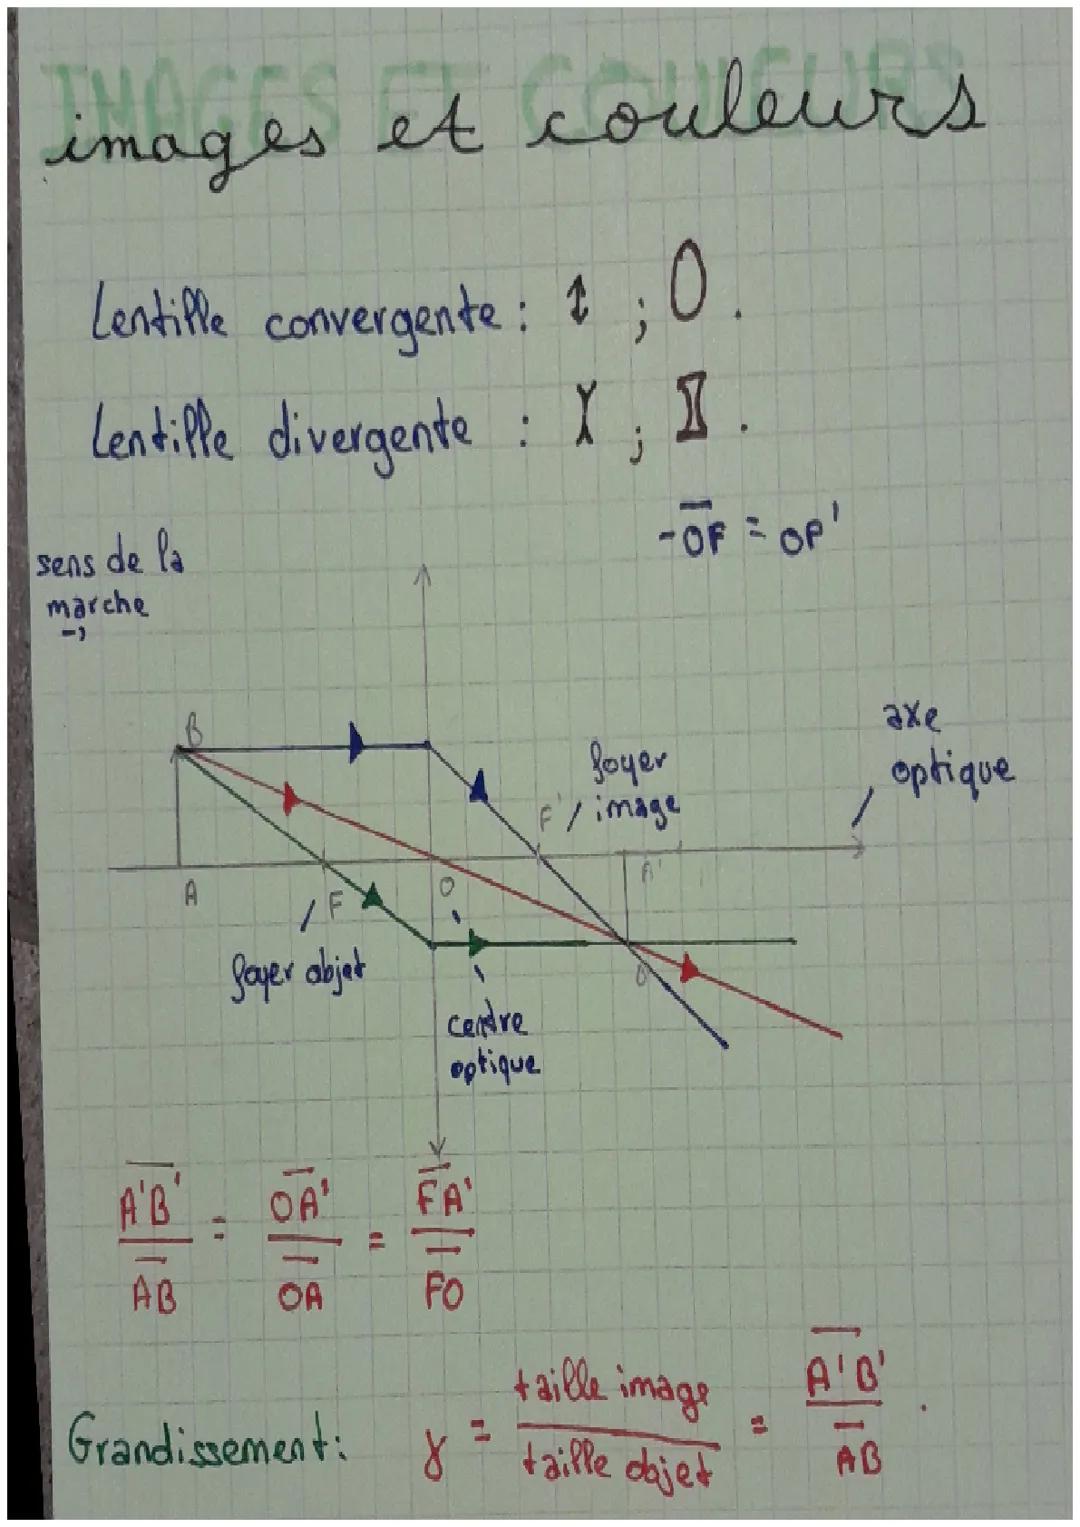 IMAGES ET COULEURS
images et couleurs
Lentille convergente : ↕ ; 0 .
Lentille divergente : X ; .
-OF = OF'
sens de la
marche
→
axe
optique
B
foyer
image
F'
A
F
O
A'
foyer objet
B'
centre
optique
A'B' / AB = OA' / OA = FA' / FO
Grandissement : γ = taille image / taille objet = A'B' / AB .